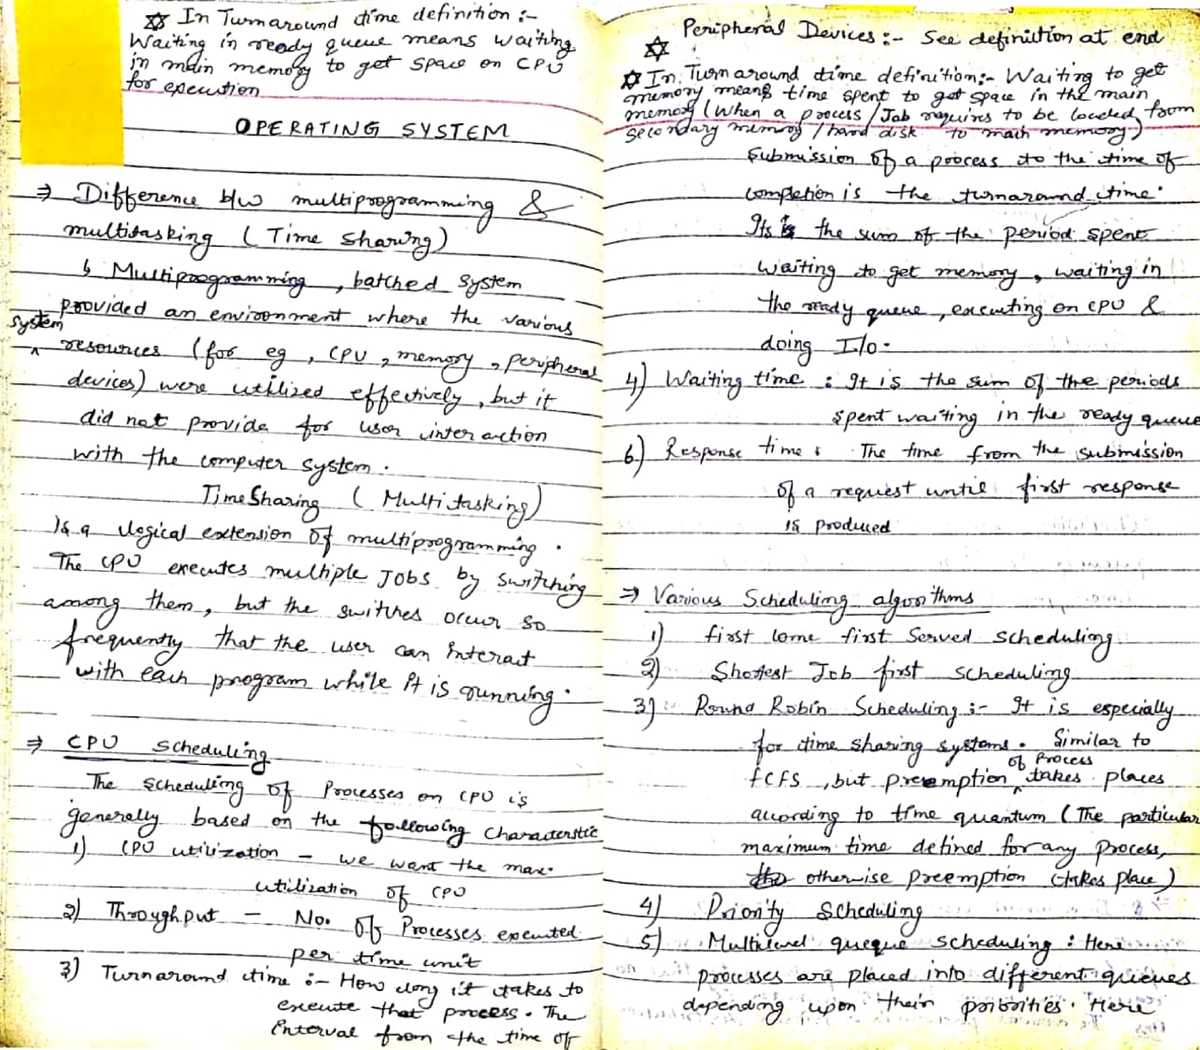 ✡ In Turnaround time definition :-
Waiting in ready queue means waiting
in main memory to get space on CPU
for execution
OPERATING SYSTEM
⇒ Difference b/w multiprogramming &
multitasking (Time Sharing)
↳ Multiprogramming, batched system
provided an environment where the various
system
^ resources (for eg, CPU, memory, peripheral
devices) were utilized effectively, but it
did not provide for user interaction
with the computer system.
Time Sharing (Multitasking)
is a logical extension of multiprogramming.
The CPU executes multiple Jobs by switching
among them, but the switches occur so
frequently that the user can interact
with each program while it is running.
⇒ CPU Scheduling
The scheduling of Processes on CPU is
generally based on the following characterstic
1) CPU utilization – we want the max.
utilization of CPU
2) Throughput – No. of Processes executed
per time unit
3) Turnaround time :- How long it takes to
execute that process. The
interval from the time of
Peripheral Devices :- See definition at end
✡
✡ In Turnaround time definition:- Waiting to get
memory means time spent to get space in the main
memory (When a process/Job requires to be loaded from
secondary memory / hard disk to main memory)
Submission of a process to the time of
completion is the turnaround time.
Its the sum of the period spent
waiting to get memory, waiting in
the ready queue, executing on CPU &
doing I/o.
4) Waiting time : It is the sum of the periods
spent waiting in the ready queue
6) Response time : The time from the submission
of a request until first response
is produced
⇒ Various Scheduling algorithms
1) first come first Served scheduling
2) Shortest Job first scheduling
3) Round Robin Scheduling :- It is especially
for time sharing systems. Similar to
of Process
FCFS, but preemption ^ takes places
according to time quantum (The particular
maximum time defined for any process,
otherwise preemption takes place)
4) Priority Scheduling
5) Multilevel queque scheduling : Here
processes are placed into different queues
depending upon their priorities. Here